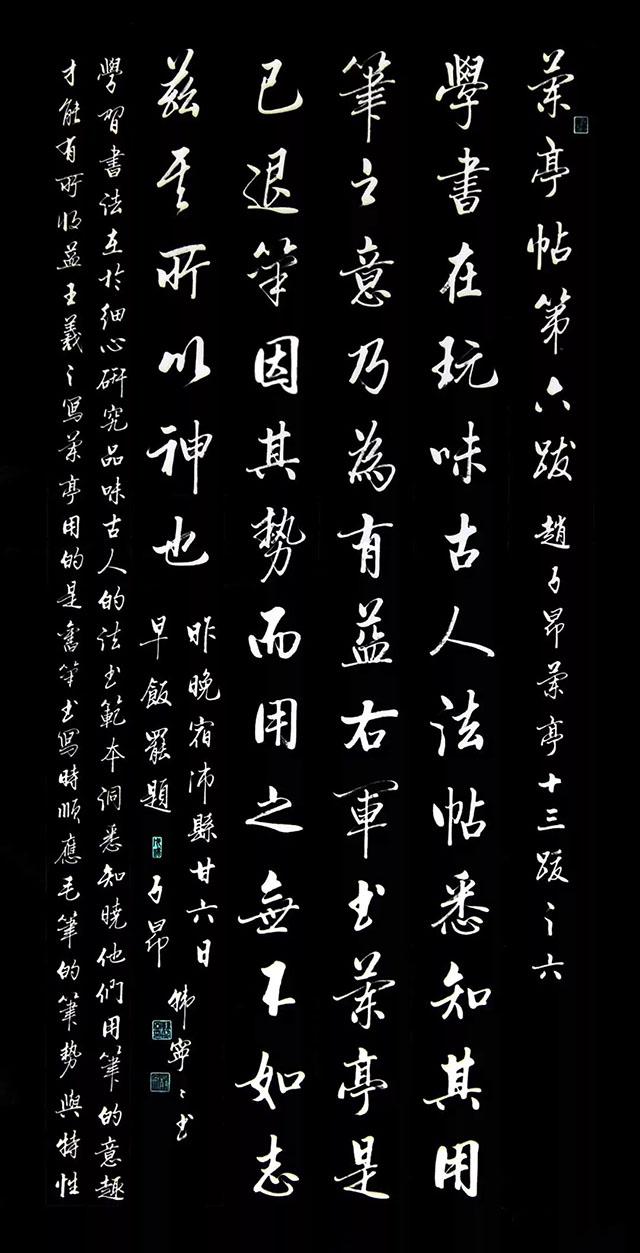 蘭亭帖第六跋 趙子昂蘭亭十三跋之六
學書在玩味古人法帖悉知其用
筆之意乃為有益右軍書蘭亭是
已退筆因其勢而用之無不如志
茲其所以神也
昨晚宿沛縣廿六日
早飯罷題 子昂
韓寧寧書
學習書法在於細心研究品味古人的法书範本洞悉知曉他們用筆的意趣
才能有所收益王羲之寫蘭亭用的是舊筆书寫時順應毛筆的筆勢與特性